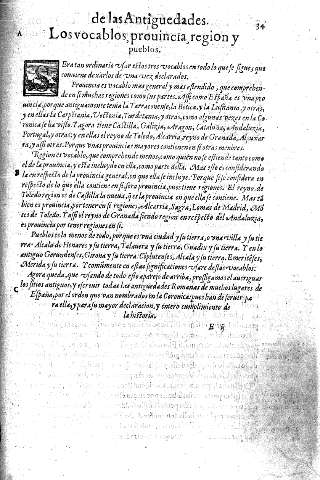 de las Antiguedades. 34
Los vocablos, prouincia, region y
pueblos.
A
ES tan ordinario vsar estos tres vocablos en todo lo que se sigue, que
conuiene dexarlos de vna vez declarados.
Prouincia es vocablo mas general y mas estendido, que comprehen-
de en si muchas regiones como sus partes. Assi como España es vna pro
uincia, porque antiguamente tenia la Tarraconense, la Betica, y la Lusitania, y otras,
y en ellas la Carpetania, Vectonia, Turdetania, y otras, como algunas vezes en la Co-
ronica se ha visto. Y agora tiene Castilla, Galizia, Aragon, Cataluña, y Andaluzia,
Portugal, y otras: y en ellas el reyno de Toledo, el Alcarria, reyno de Granada,
y assi otras. Porque vnas prouincias mayores contienen en si otras menores.
Region es vocablo, que comprehende menos, como quien no se estiende tanto como
el de la prouincia, y esta incluyda en ella, como parte della. Mas esto es considerando
B
la en respecto de la prouincia general, en que ella se incluye. Porque si se considera en
respecto de lo que ella contiene en si, sera prouincia, pues tiene regiones. El reyno de
Toledo region es de Castilla la nueua, que es la prouincia en que ella se contiene. Mas tã
bien es prouincia, por tener en si regiones, Alcarria, Sagra, Lomas de Madrid,
de Toledo. Y assi el reyno de Granada siendo region en respecto del Andaluzia,
es prouincia por tener regiones en si.
Pueblo es lo menos de todo, porque es vna ciudad y su tierra, o vna villa y su tie
rra. Alcala de Henares y su tierra, Talauera y su tierra, Guadix y su tierra. Y en lo
antiguo Gerundenses, Girona y su tierra. Complutenses, Alcala y su tierra. Emeritenses,
Merida y su tierra. Y comunmente en estas significaciones vsare destos vocablos.
Agora queda, que vsando de todo esto que es de arriba, prosigamos el aueriguar
C
los sitios antiguos, y escreuir todas las antiguedades Romanas de muchos lugares de
España, por el orden que van nombrados en la Coronica: pues han de seruir pa
ra ella, y para su mayor declaracion, y entero cumplimiento de
la historia.
E ij